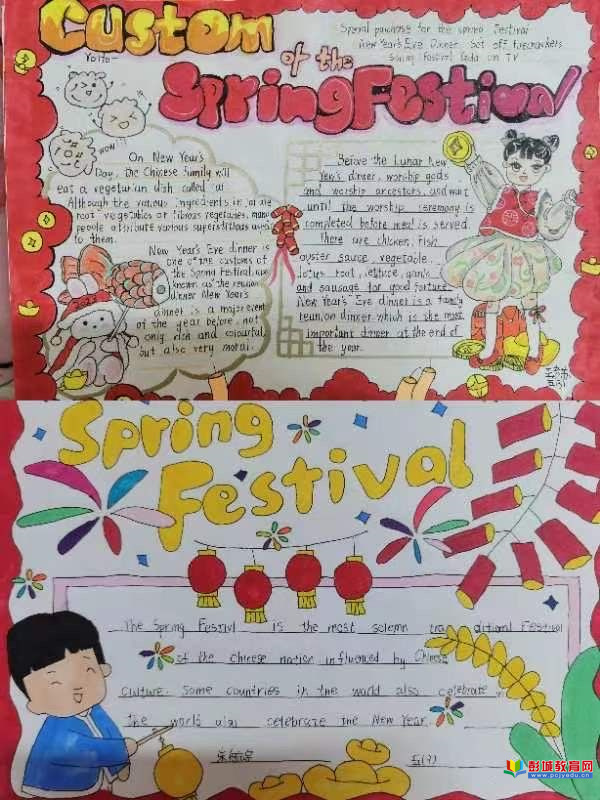 Custom
of the
Spring Festival
Special purchase for the spring Festival
New Year's Eve Dinner Set off firecrackers
Spring Festival Gala on TV
WOW!
On New Year's
Day, the Chinese family will
eat a vegetarian dish called jai
Although the various ingredients in jai are
root vegetables or fibrous vegetables, many
people attribute various superstitious aspects
to them.
New Year's Eve dinner is
one of the customs of
the Spring Festival, also
known as the reunion
dinner New Year's
dinner is a major event
of the year before, not
only rich and colourful,
but also very
2023
Before the Lunar New
Year's dinner, worship gods
and worship ancestors, and wait
until the worship ceremony is
completed before meal is served.
There are chicken, fish
oyster sauce, vegetable,
lotus root, lettuce,
and sausage for good fortune
New Year's Eve dinner is a family
reunion dinner which is the most
important dinner at the end of
the year.
Spring
Festival
The Spring Festivl is the most solemn traditional Festival
of the chinese nation influenced by Chinese
culture. Some countries in the world also celebrate
the world also celebrate the New Year.
彭城教育网
www.pcjyedu.cn